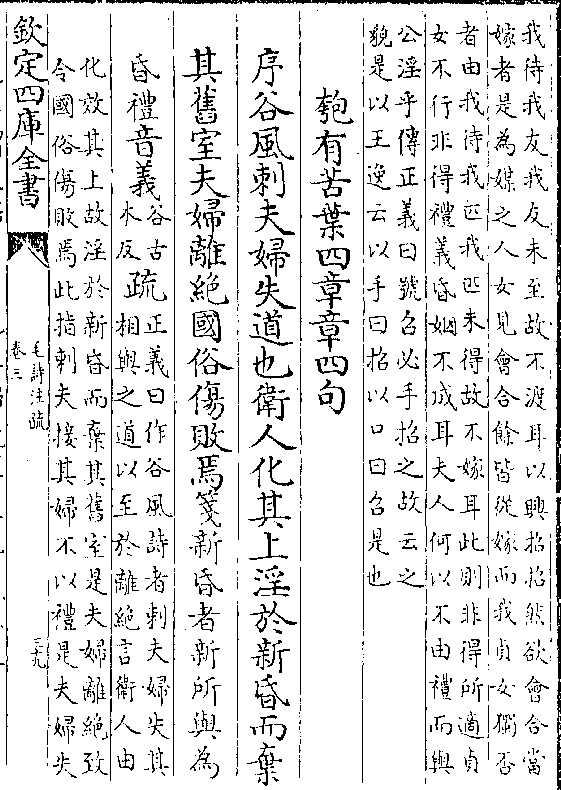 我待我友我友未至故不渡耳以興招招然欲會合當
嫁者是為媒之人女見會合餘皆從嫁而我貞女獨否
者由我待我匹我匹未得故不嫁耳此則非得所適貞
女不行非得禮義昏姻不成耳夫人何以不由禮而與
公淫乎傳正義曰號召必手招之故云之
貌是以王逸云以手曰招以口曰召是也
匏有苦葉四章章四句
序谷風刺夫婦失道也衛人化其上淫於新昏而棄
其舊室夫婦離絕國俗傷敗焉箋新昏者新所與為
昏禮音義谷古木反疏正義曰作谷風詩者刺夫婦失其
相與之道以至於離絕言衛人由
化效其上故淫於新昏而棄其舊室是夫婦離絕致
令國俗傷敗焉此指刺夫接其婦不以禮是夫婦失
欽定四庫全書
毛詩注疏
卷三
三九